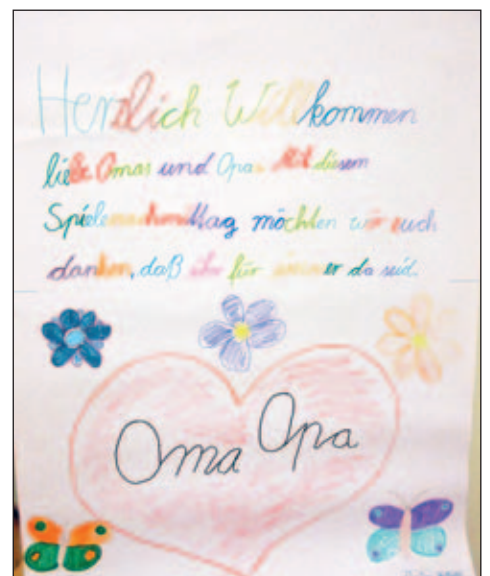 Herzlich Willkommen
liebe Omas und Opas. Mit diesem
Spielenachmittag möchten wir euch
danken, daß ihr für immer da seid.
Oma Opa